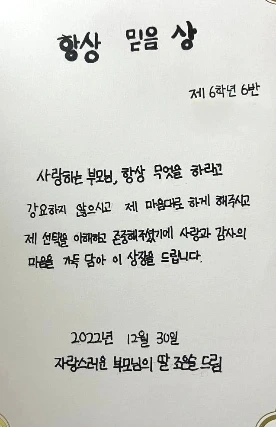 항상 믿음 상
제 6학년 6반
사랑하는 부모님, 항상 무엇을 하라고
강요하지 않으시고 제 마음대로 하게 해주시고
제 선택을 이해하고 존중해주셨기에 사랑과 감사의
마음을 가득 담아 이 상장을 드립니다.
2022년 12월 30일
자랑스러운 부모님의 딸 조은솔 드림